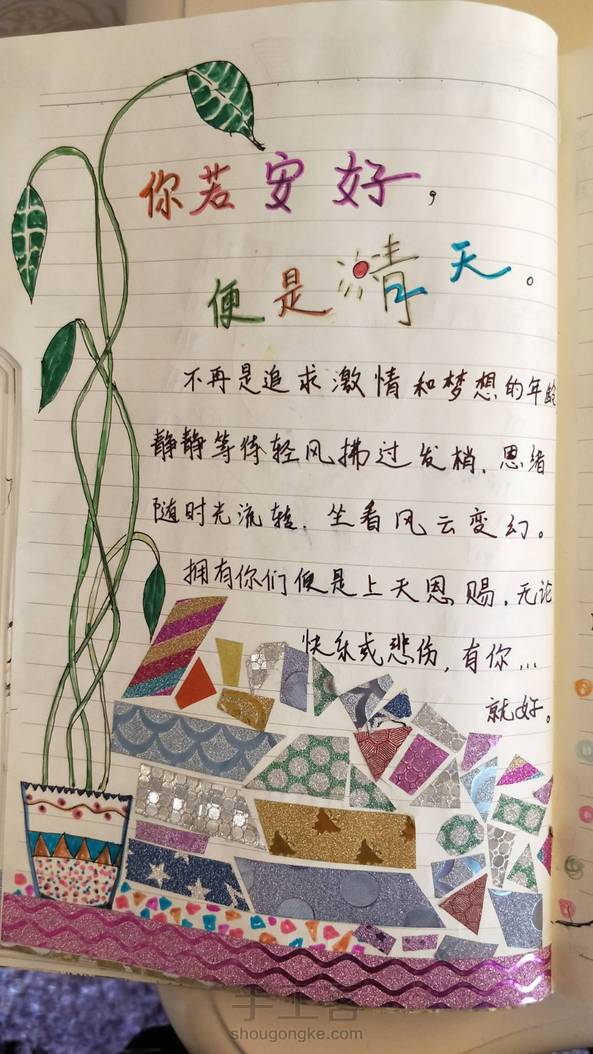 你若安好，
便是晴天。
不再是追求激情和梦想的年龄
静静等待轻风拂过发梢，思绪
随时光流转，坐看风云变幻。
拥有你们便是上天恩赐，无论
快乐或悲伤，有你…
就好。
手工客
shougongke.com